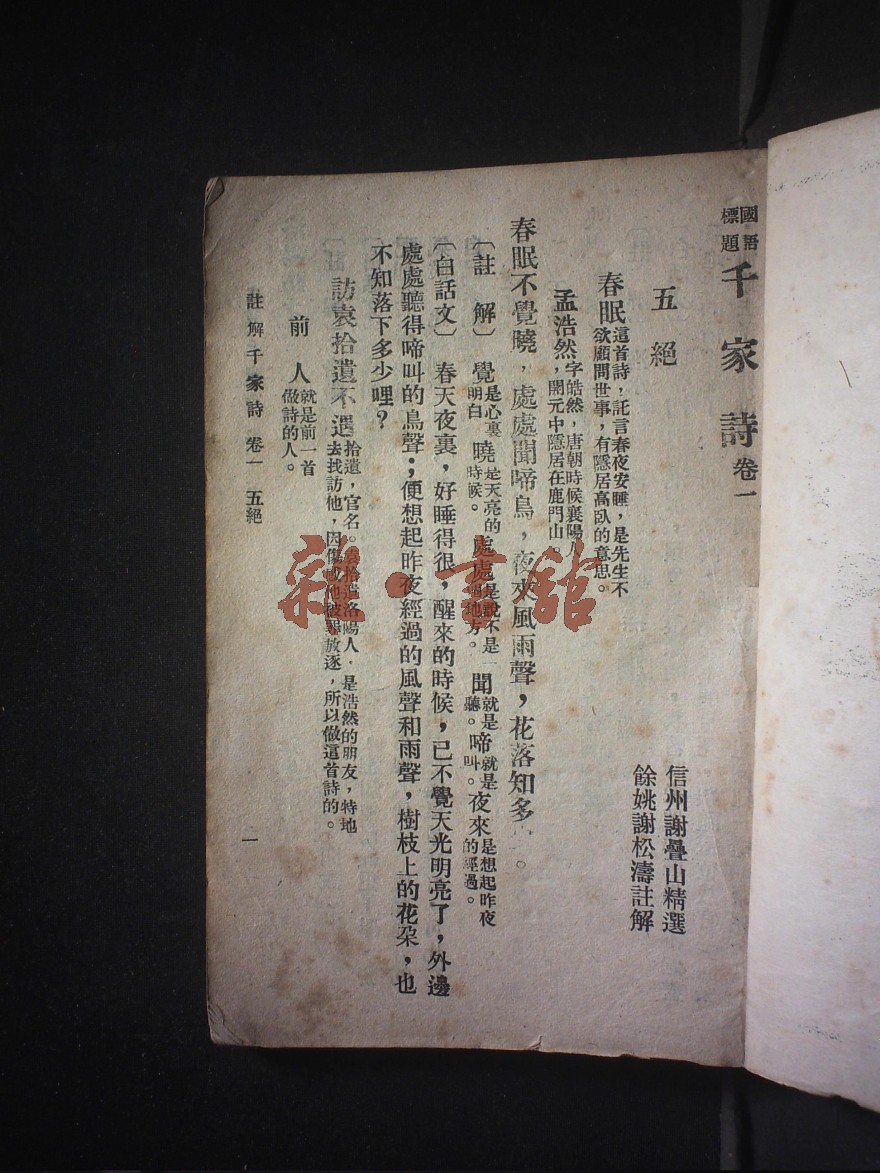 國語標題千家詩卷一
信州謝疊山精選
餘姚謝松濤註解
五絕
春眠 這首詩，託言春夜安睡，是先生不欲顧問世事，有隱居高臥的意思。
孟浩然 字皓然，唐朝時候襄陽人。開元中隱居在鹿門山。
春眠不覺曉，處處聞啼鳥，夜來風雨聲，花落知多。
〔註解〕 覺是心裏明白 曉是天亮的時候。 處處是說不是一地方。 聞就是聽。 啼就是叫。 夜來是想起昨夜的經過。
〔白話文〕 春天夜裏，好睡得很，醒來的時候，已不覺天光明亮了，外邊
處處聽得啼叫的鳥聲；便想起昨夜經過的風聲和雨聲，樹枝上的花朶，也
不知落下多少哩？
訪袁拾遺不遇 拾遺，官名。袁拾遺洛陽人，是浩然的朋友，特地去找訪他，因傷他被罪放逐，所以做這首詩的。
前人 就是前一首做詩的人。
註解千家詩 卷一 五絕
一
雜·書館